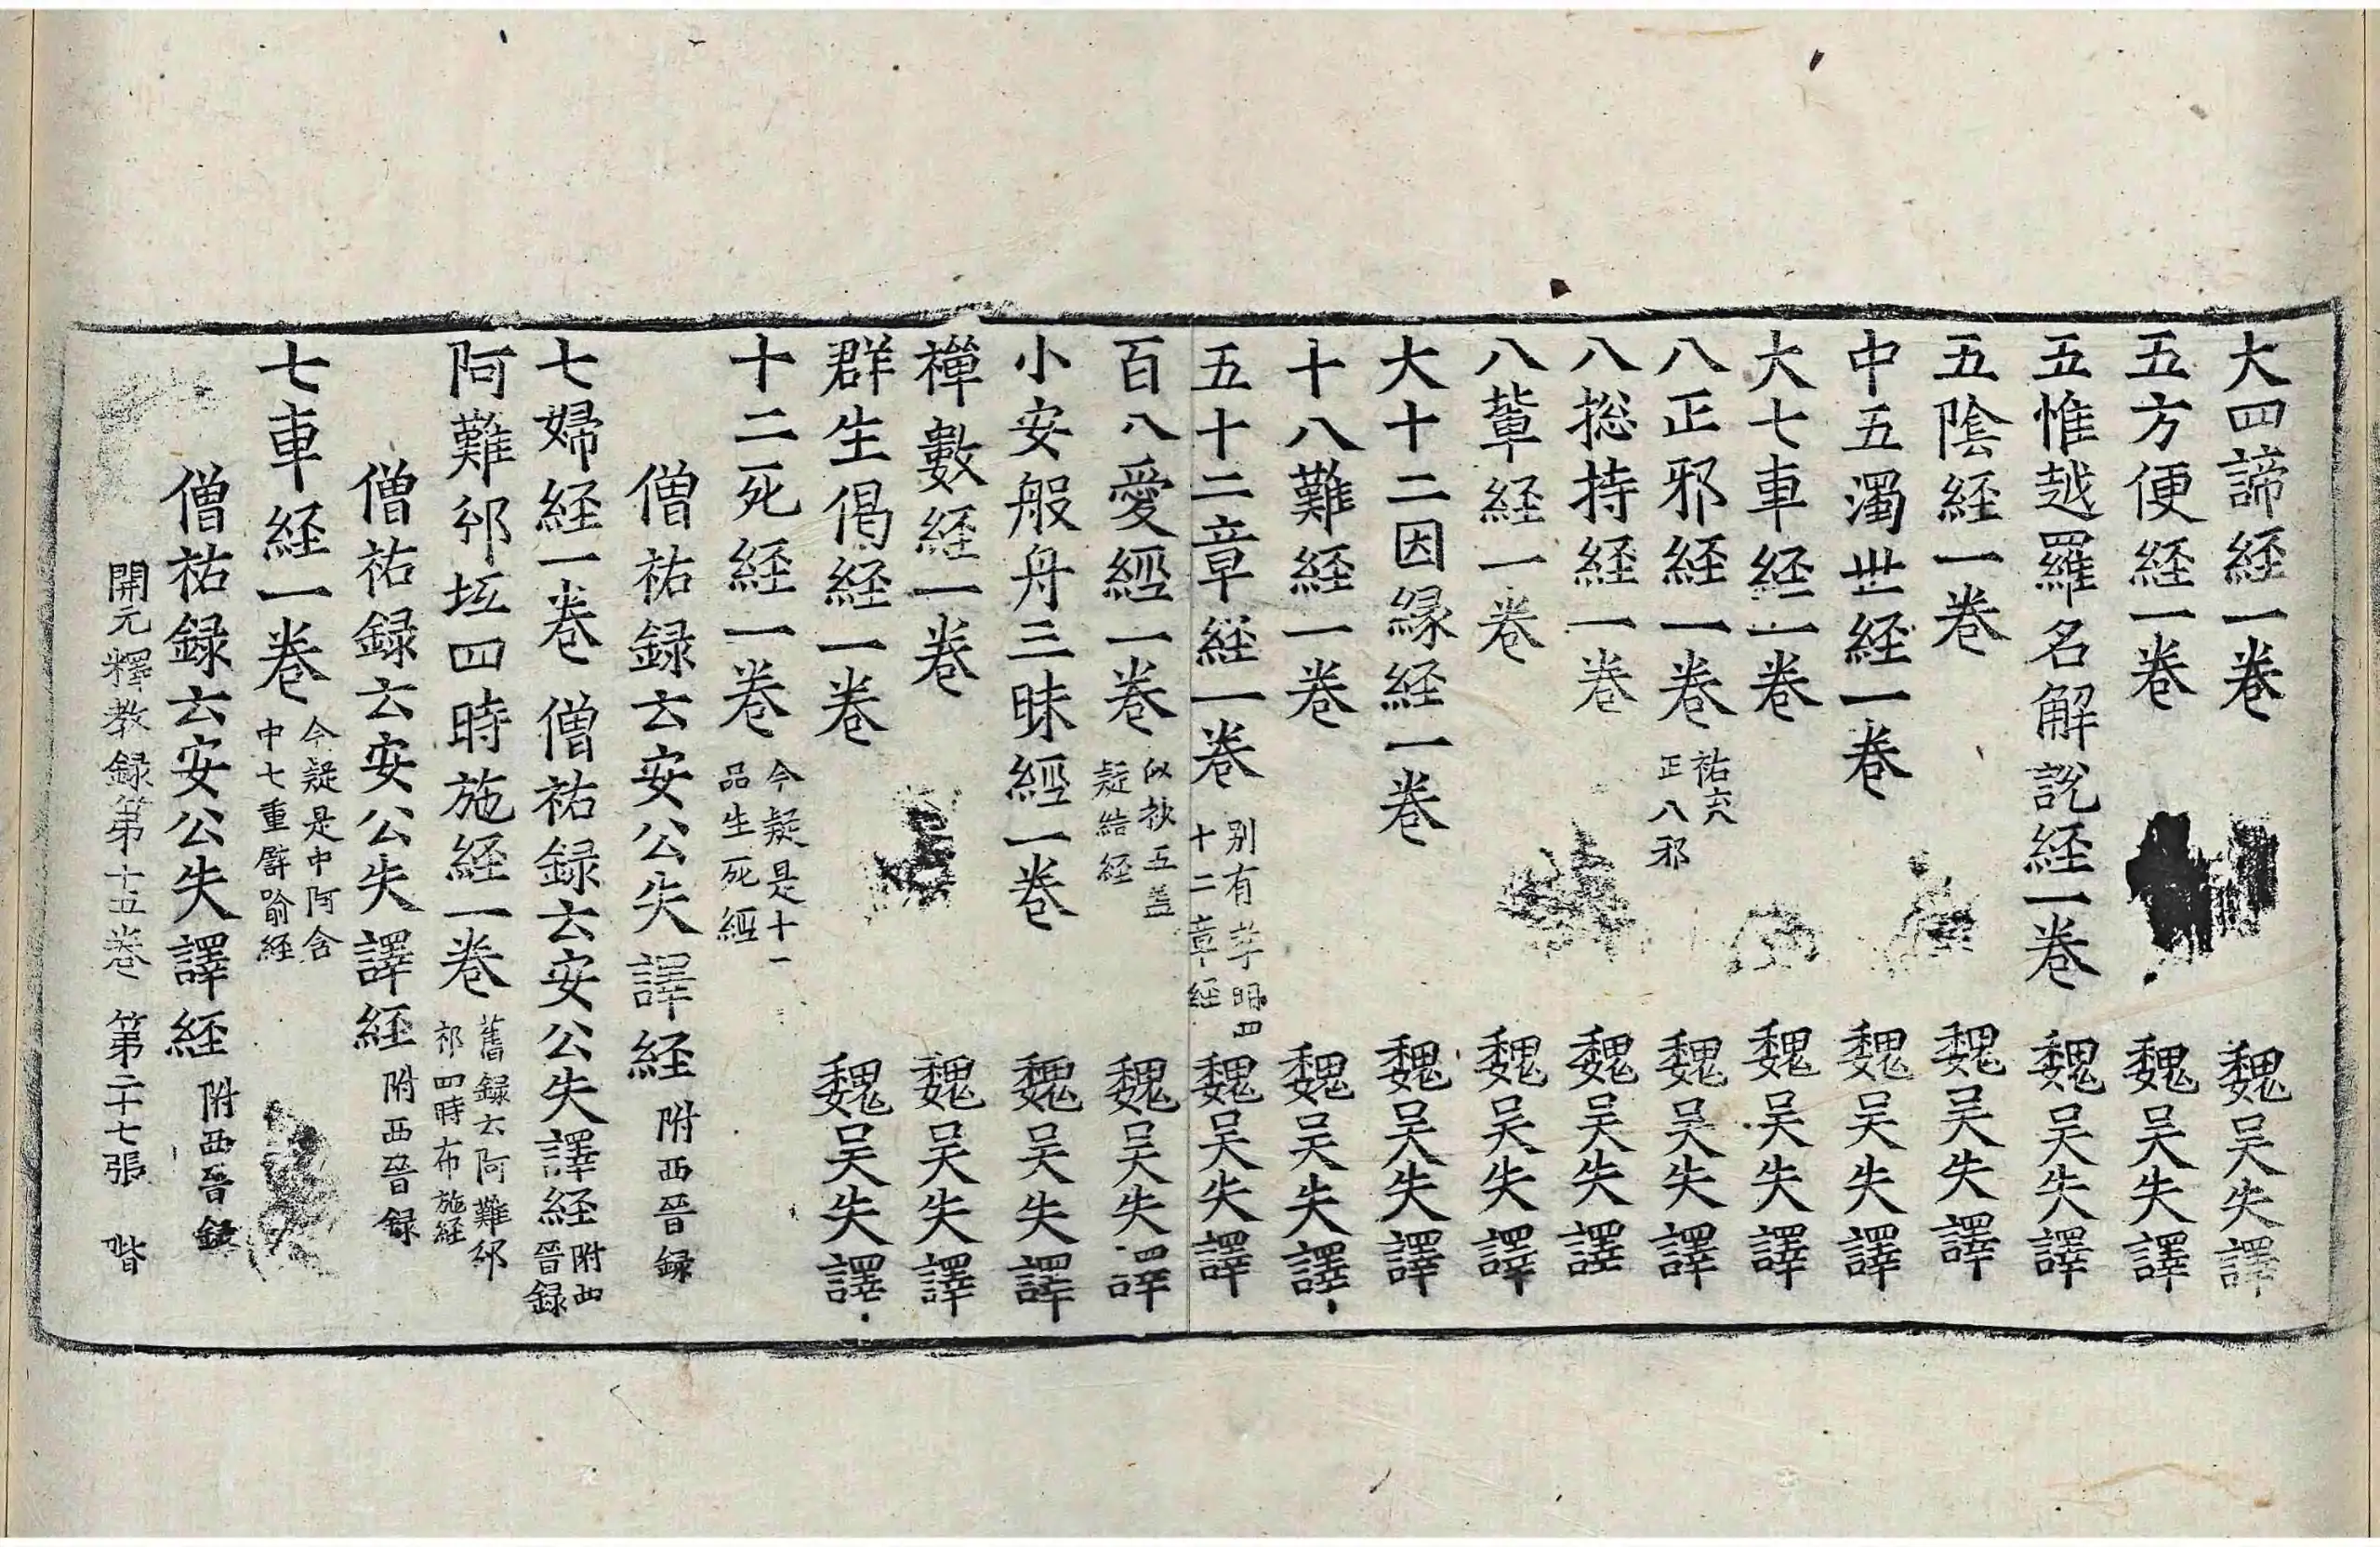 大四諦経一卷 魏吴失譯
五方便経一卷 魏吴失譯
五惟越羅名解説経一卷 魏吴失譯
五陰経一卷 魏吴失譯
中五濁世経一卷 魏吴失譯
大七車経一卷 魏吴失譯
八正邪経一卷 祐云八正八邪 魏吴失譯
八揔持経一卷 魏吴失譯
八輩経一卷 魏吴失譯
大十二因縁経一卷 魏吴失譯
十八難経一卷 魏吴失譯
五十二章経一卷 别有孝明四十二章経 魏吴失譯
百八愛經一卷 似抄五盖疑結経 魏吴失譯
小安般舟三昧經一卷 魏吴失譯
禅數経一卷 魏吴失譯
群生偈経一卷 魏吴失譯
十二死経一卷 今疑是十一品生死經
僧祐録云安公失譯経 附西晉録
七婦経一卷 僧祐録云安公失譯経 附西晉録
阿難邠坻四時施経一卷 舊録云阿難邠祁四時布施経
僧祐録云安公失譯経 附西晉録
七車経一卷 今疑是中阿含中七重譬喻経
僧祐録云安公失譯経 附西晉録
開元釋教録第十五卷 第二十七張 階